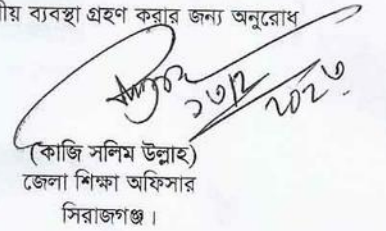 ীয় ব্যবস্থা গ্রহণ করার জন্য অনুরোধ
১৩/২
২০২৩
(কাজি সলিম উল্লাহ)
জেলা শিক্ষা অফিসার
সিরাজগঞ্জ।